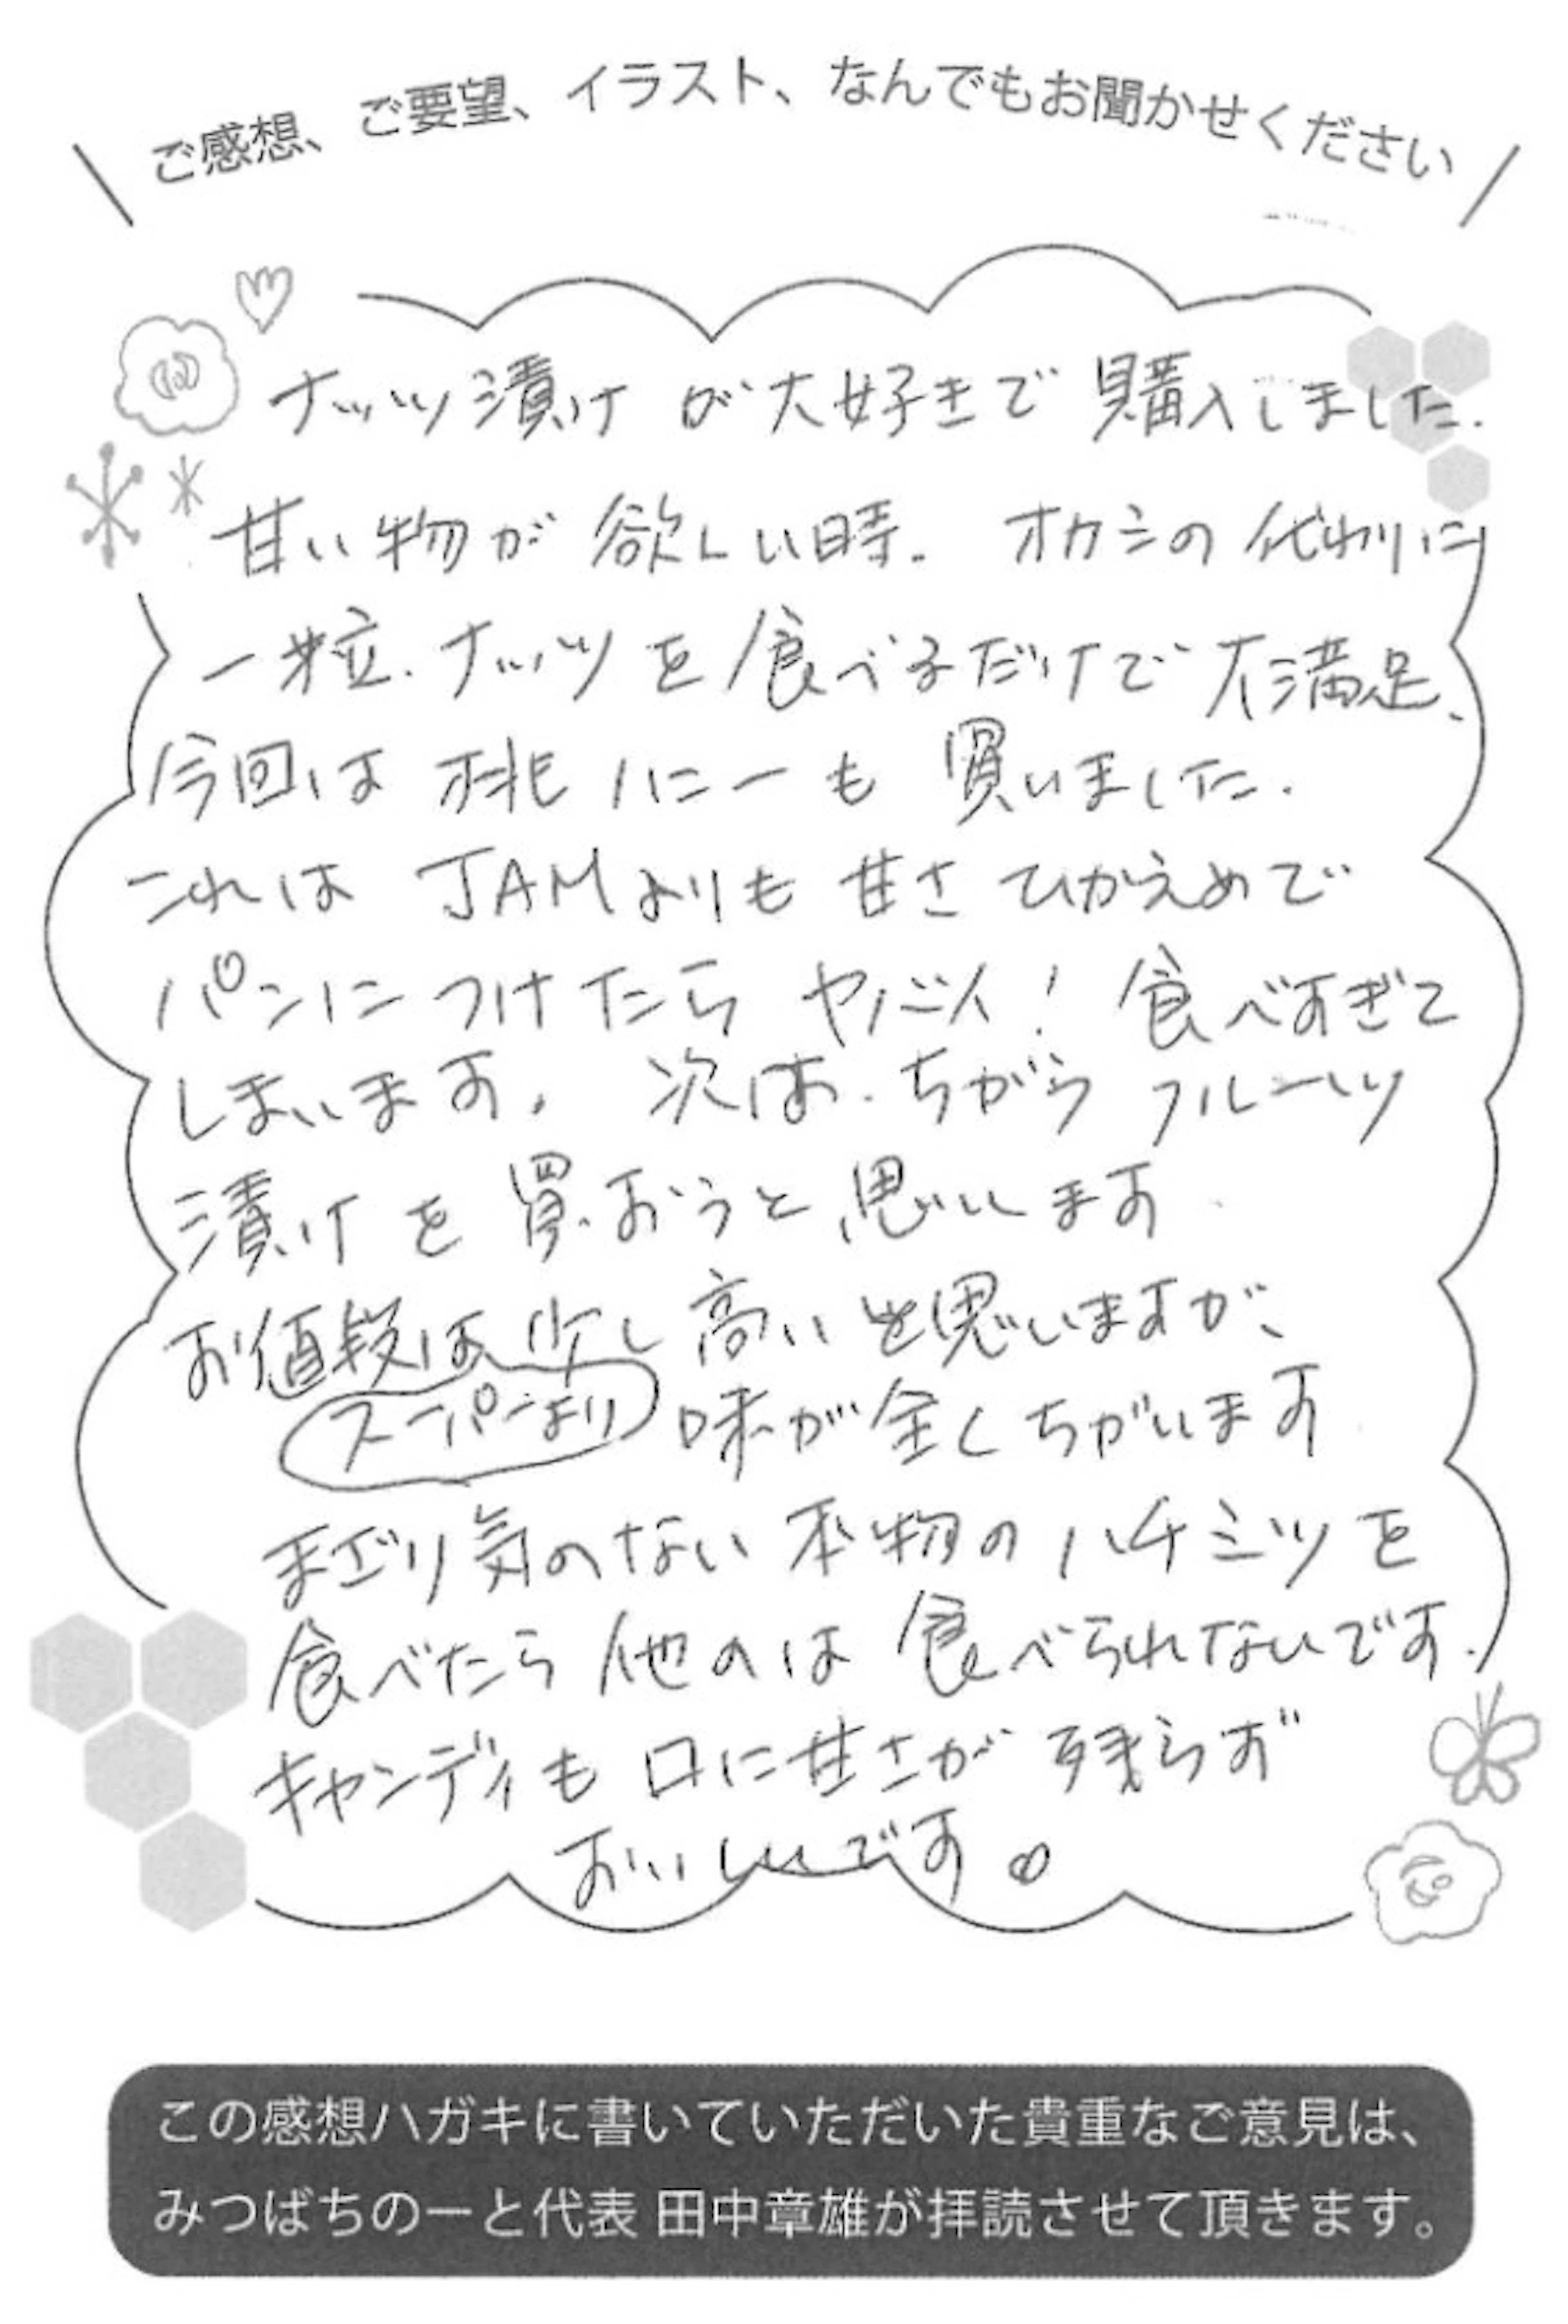 ご感想、ご要望、イラスト、なんでもお聞かせください
ナッツ漬けが大好きで購入しました.
甘い物が欲しい時. オカシの代わりに
一粒. ナッツを食べるだけで大満足、
今回は桃ハニーも買いました.
これは JAMよりも甘さひかえめで
パンにつけたらヤバイ! 食べすぎて
しまいます. 次は. ちがうフルーツ
漬けを買おうと思います
お値段は少し高いと思いますが、
スーパーより味が全くちがいます
まざり気のない本物のハチミツを
食べたら他のは食べられないです.
キャンディも口に甘さが残らず
おいしいです♡
この感想ハガキに書いていただいた貴重なご意見は、
みつばちのーと代表 田中章雄が拝読させて頂きます。